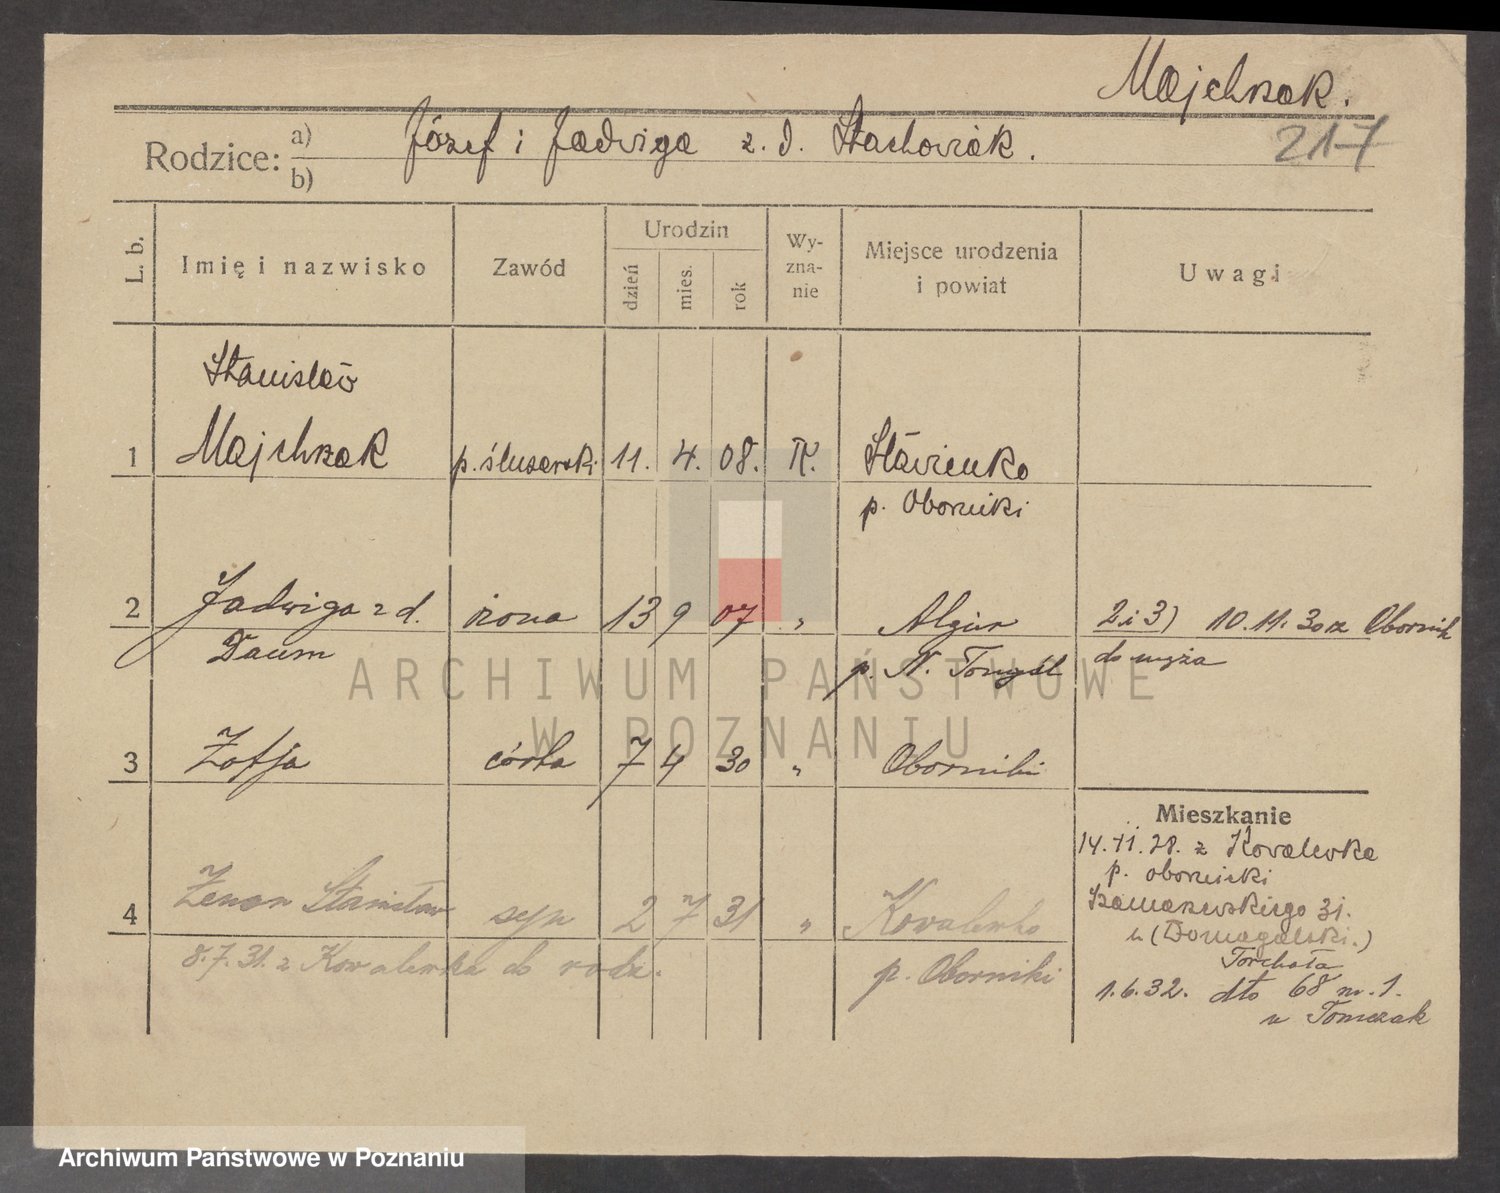 Majchrzak.
217
Rodzice: a) b) Józef i Jadwiga z. d. Stachowiak.
L. b. Imię i nazwisko Zawód Urodzin dzień mies. rok Wyznanie Miejsce urodzenia i powiat Uwagi
Stanisław
1 Majchrzak p. ślusarski 11. 4. 08. rk. Sławienko
p. Oborniki
2 Jadwiga z d. żona 13 9 07 „ 2 i 3) 10.11.30 z Obornik
Daum p. N. Tomyśl do męża
3 Zofja córka 7 4 30 „ Oborniki
Mieszkanie
14.11.28. z Kowalewka
p. obornicki
4 Zenon Stanisław syn 2 7 31 „ Kowalewko
31.
u (Domagalski.)
8.7.31. z Kowalewka do rodz. p. Oborniki
1.6.32. dto 68 m. 1.
u Tomczak
ARCHIWUM PAŃSTWOWE
W POZNANIU
Archiwum Państwowe w Poznaniu